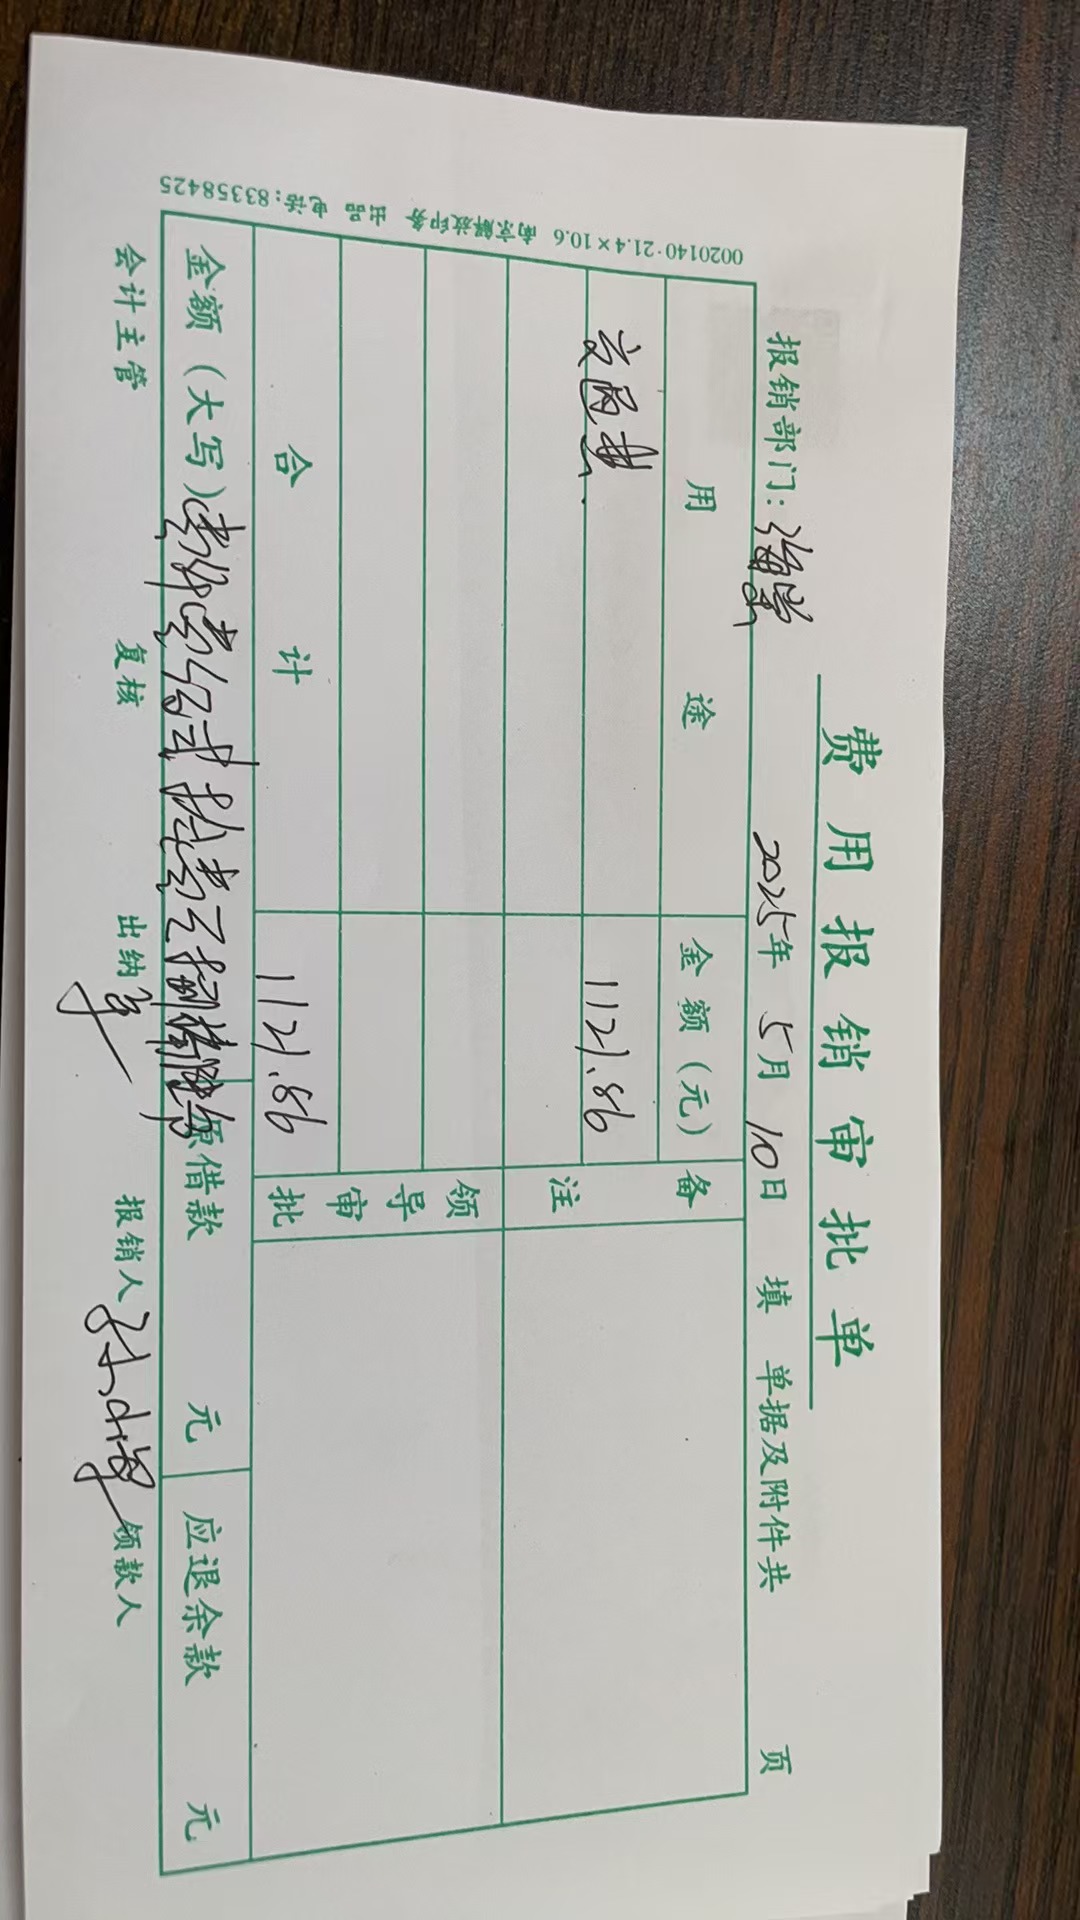 费用报销审批单
报销部门: 海棠 2025年 5月 10日 填 单据及附件共 页
用途 金额(元) 备注
交通费. 1121.86
领导审批
合计 1121.86
金额(大写)壹仟壹佰贰拾壹元捌角陆分 原借款 元 应退余款 元
会计主管 复核 出纳 报销人 领款人
0020140·21.4×10.6 南京解放印务 出品 电话:83358425